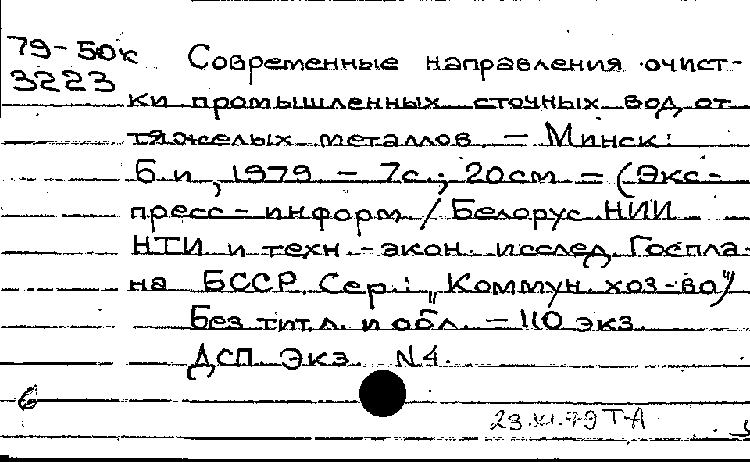 79-50к
3223
Современные направления очист-
ки промышленных сточных вод от
тяжелых металлов. - Минск:
Б.и., 1979 - 7с.; 20см = (Экс-
пресс-информ / Белорус НИИ
НТИ и техн.-экон. исслед. Госпла-
на БССР. Сер.: "Коммун. хоз-во")
Без тит.л. и обл. - 110 экз.
ДСП Экз. N4.
6
23.XI.79 Т-А